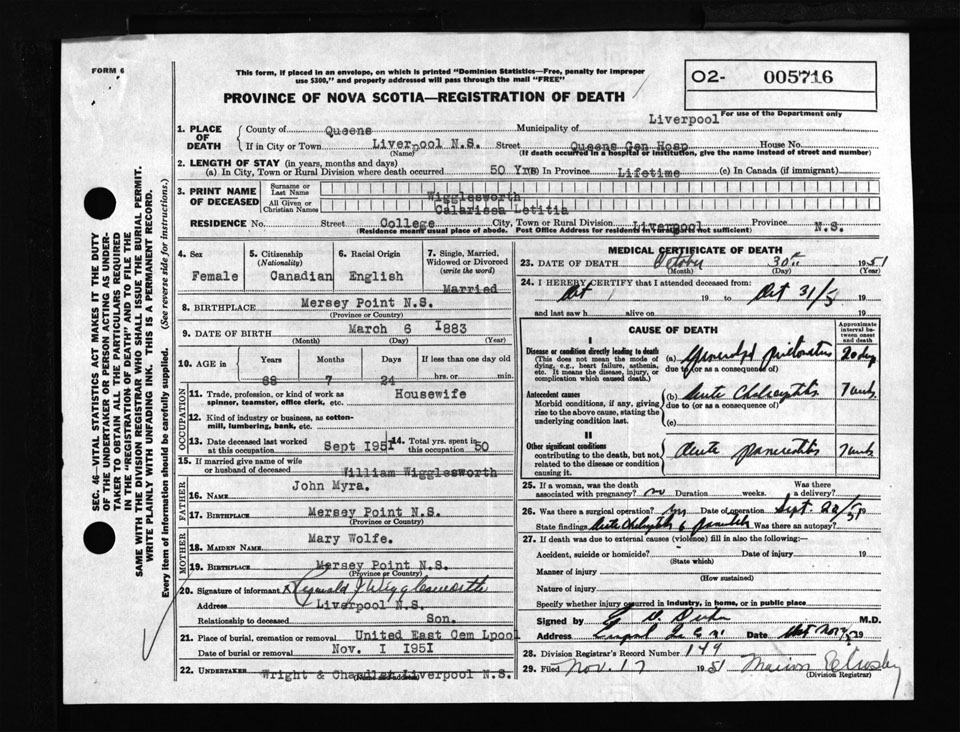 FORM 6
This form, if placed in an envelope, on which is printed "Dominion Statistics—Free, penalty for improper
use $300," and properly addressed will pass through the mail "FREE"
O2- 005716
PROVINCE OF NOVA SCOTIA—REGISTRATION OF DEATH
For use of the Department only
1. PLACE OF DEATH County of Queens Municipality of Liverpool
If in City or Town Liverpool N.S. Street Queens Gen Hosp House No.
(Name) (If death occurred in a hospital or institution, give the name instead of street and number)
2. LENGTH OF STAY (in years, months and days)
(a) In City, Town or Rural Division where death occurred 50 Yrs (b) In Province Lifetime (c) In Canada (if immigrant)
3. PRINT NAME OF DECEASED Surname or Last Name Wigglesworth
All Given or Christian Names Calarissa Letitia
RESIDENCE No. Street College City, Town or Rural Division Liverpool Province N.S.
(Residence means usual place of abode. Post Office Address for residents in rural not sufficient)
4. Sex Female
5. Citizenship (Nationality) Canadian
6. Racial Origin English
7. Single, Married, Widowed or Divorced (write the word) Married
8. BIRTHPLACE Mersey Point N.S.
(Province or Country)
9. DATE OF BIRTH March 6 I883
(Month) (Day) (Year)
10. AGE in Years Months Days If less than one day old
68 7 24 hrs. or min.
OCCUPATION
11. Trade, profession, or kind of work as spinner, teamster, office clerk, etc. Housewife
12. Kind of industry or business, as cotton-mill, lumbering, bank, etc.
13. Date deceased last worked at this occupation Sept I951
14. Total yrs. spent in this occupation 50
15. If married give name of wife or husband of deceased William Wigglesworth
FATHER
16. NAME John Myra.
17. BIRTHPLACE Mersey Point N.S.
(Province or Country)
MOTHER
18. MAIDEN NAME Mary Wolfe.
19. BIRTHPLACE Mersey Point N.S.
(Province or Country)
20. Signature of informant Reginald J Wigglesworth
Address Liverpool N.S.
Relationship to deceased Son.
21. Place of burial, cremation or removal United East Cem Lpool
Date of burial or removal Nov. I I95I
22. UNDERTAKER Wright & Chandler Liverpool N.S.
(Name and address)
MEDICAL CERTIFICATE OF DEATH
23. DATE OF DEATH October 30th 1951
(Month) (Day) (Year)
24. I HEREBY CERTIFY that I attended deceased from:
Oct 19 to Oct 31/5 19
and last saw h alive on 19
CAUSE OF DEATH
Approximate interval between onset and death
I
Disease or condition directly leading to death
(This does not mean the mode of dying, e.g., heart failure, asthenia, etc. It means the disease, injury, or complication which caused death.)
(a) 20 days
due to (or as a consequence of)
Antecedent causes
Morbid conditions, if any, giving rise to the above cause, stating the underlying condition last.
(b) Acute Cholecystitis 7 weeks
due to (or as a consequence of)
(c)
II
Other significant conditions
contributing to the death, but not related to the disease or condition causing it.
Acute pancreatitis 7 weeks
25. If a woman, was the death associated with pregnancy? no Duration weeks. Was there a delivery?
26. Was there a surgical operation? yes Date of operation Sept. 20/51 19
State findings Acute Cholecystitis & pancreatitis Was there an autopsy?
27. If death was due to external causes (violence) fill in also the following:—
Accident, suicide or homicide? Date of injury 19
(State which)
Manner of injury
(How sustained)
Nature of injury
Specify whether injury occurred in industry, in home, or in public place
Signed by M.D.
Address Date 19
28. Division Registrar's Record Number 149
29. Filed Nov. 17 1951 Marion E Crosby
(Division Registrar)
SEC. 46—VITAL STATISTICS ACT MAKES IT THE DUTY
OF THE UNDERTAKER OR PERSON ACTING AS UNDER-
TAKER TO OBTAIN ALL THE PARTICULARS REQUIRED
IN THE "REGISTRATION OF DEATH" AND TO FILE THE
SAME WITH THE DIVISION REGISTRAR WHO SHALL ISSUE THE BURIAL PERMIT.
WRITE PLAINLY WITH UNFADING INK. THIS IS A PERMANENT RECORD.
Every item of information should be carefully supplied. (See reverse side for instructions.)